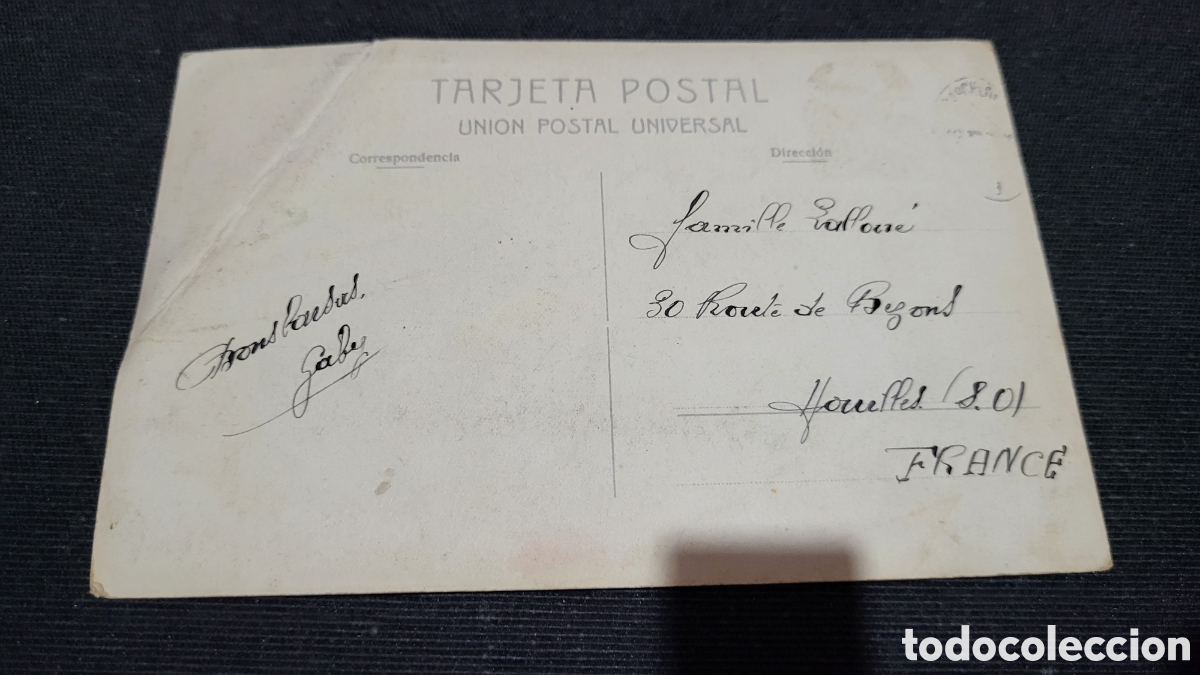 TARJETA POSTAL
UNION POSTAL UNIVERSAL
Correspondencia
Dirección
Bons baisers.
Gaby
famille
30 Route de Bezons
Houilles (S.O)
FRANCE
todocoleccion